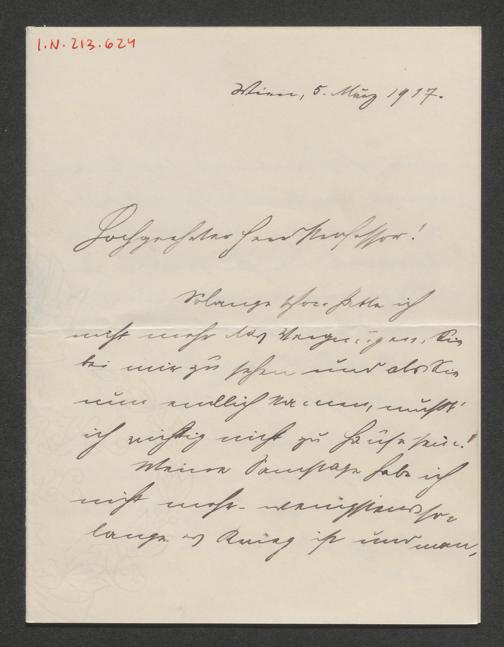 I.N. 213.624
Wien, 5. März 1917.
Hochgeehrter Herr Professor!
Solange schon hatte ich
nicht mehr das Vergnügen, Sie
bei mir zu sehen und als Sie
nun endlich kamen, mußt'
ich richtig nicht zu Hause sein!
Meine Samstage habe ich
nicht mehr - wenigstens so-
lange es Krieg ist und man,